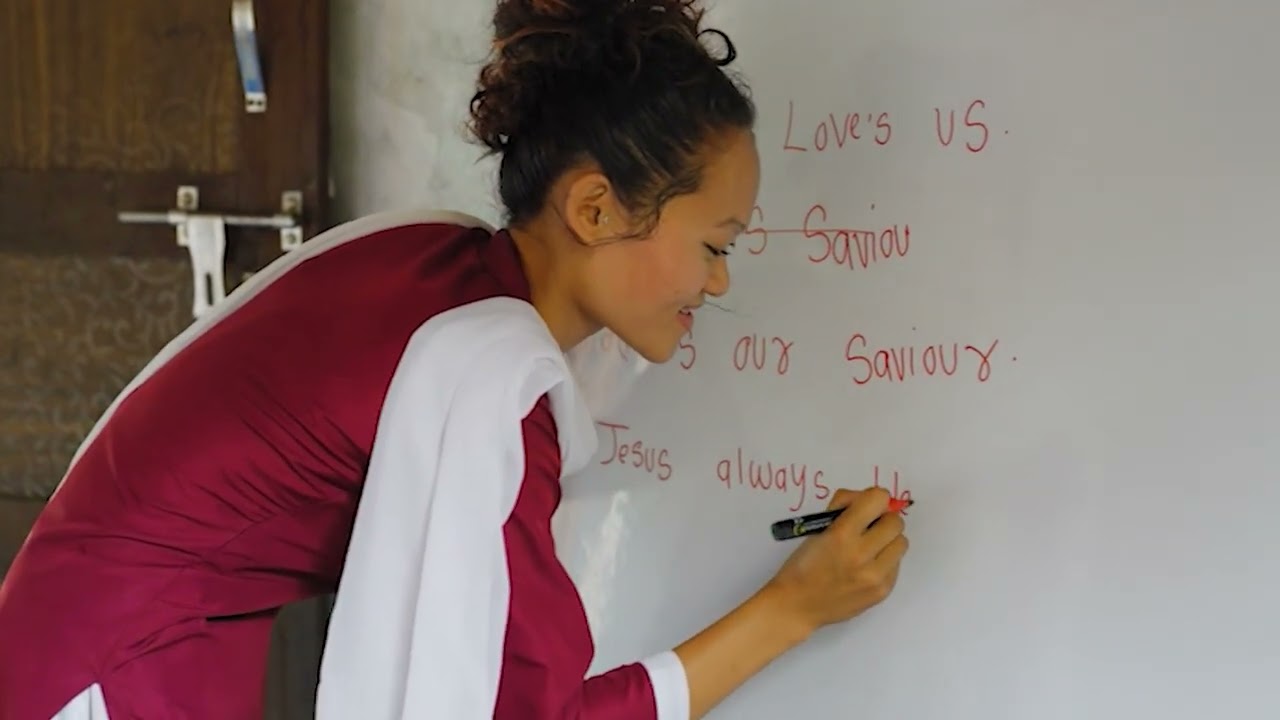 Love's us.
Saviou
our Saviour.
Jesus always